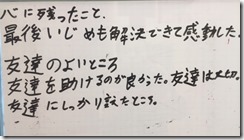 心に残ったこと.
最後いじめも解決できて感動した.
友達のよいところ
友達を助けるのが良かった。友達は大切.
友達にしっかり言えたところ。